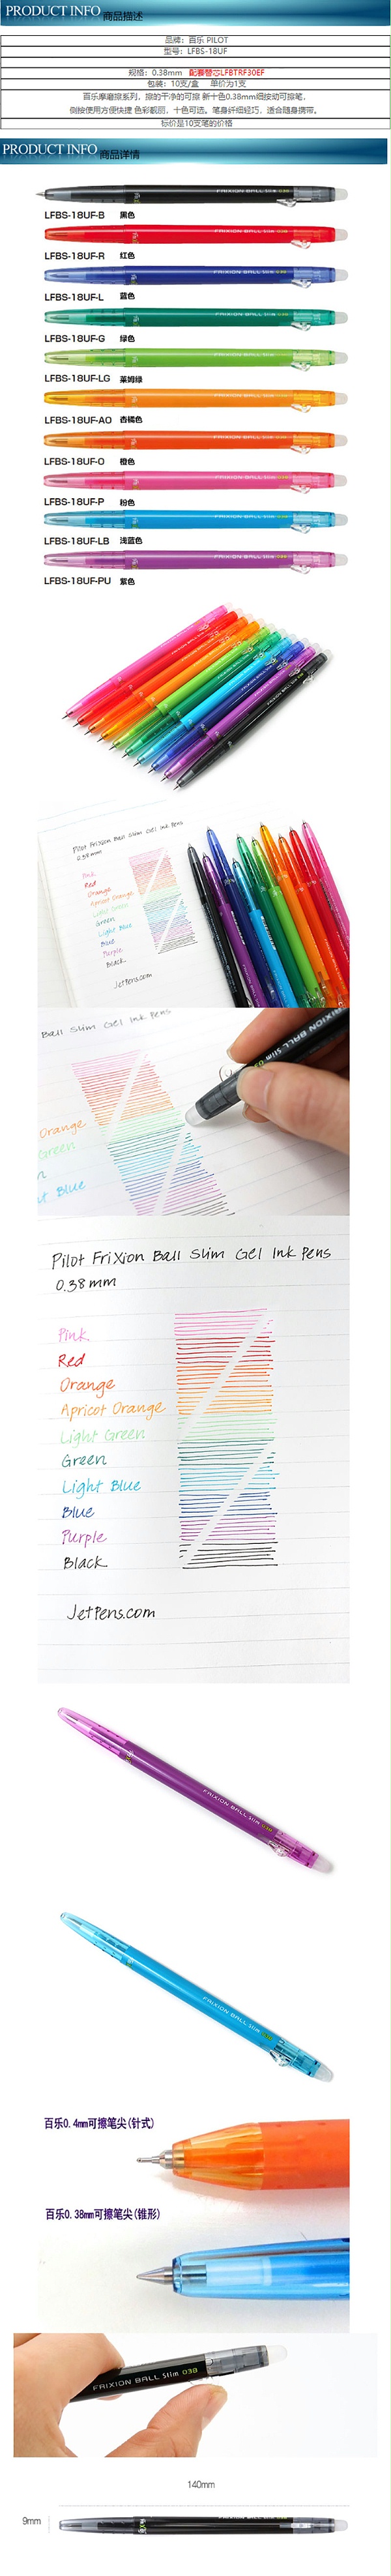 PRODUCT INFO 商品描述
品牌：百乐 PILOT
型号：LFBS-18UF
规格：0.38mm 配套替芯LFBTRF30EF
包装：10支/盒 单价为1支
百乐摩磨擦系列，擦的干净的可擦 新十色0.38mm细按动可擦笔，
侧按使用方便快捷 色彩靓丽，十色可选。笔身纤细轻巧，适合随身携带。
标价是10支笔的价格
PRODUCT INFO 商品详情
FRIXION BALL Slim 038
LFBS-18UF-B 黑色
FRIXION BALL Slim 038
LFBS-18UF-R 红色
FRIXION BALL Slim 038
LFBS-18UF-L 蓝色
FRIXION BALL Slim 038
LFBS-18UF-G 绿色
FRIXION BALL Slim 038
LFBS-18UF-LG 莱姆绿
FRIXION BALL Slim 038
LFBS-18UF-AO 杏橘色
FRIXION BALL Slim 038
LFBS-18UF-O 橙色
FRIXION BALL Slim 038
LFBS-18UF-P 粉色
FRIXION BALL Slim 038
LFBS-18UF-LB 浅蓝色
FRIXION BALL Slim 038
LFBS-18UF-PU 紫色
Pilot Frixion Ball Slim Gel Ink Pens
0.38mm
Pink
Red
Orange
Apricot Orange
Light Green
Green
Light Blue
Blue
Purple
Black
JetPens.com
Ball Slim Gel Ink Pens
FRIXION BALL Slim 03
Orange
Green
n
ht Blue
Pilot FriXion Ball Slim Gel Ink Pens
0.38mm
Pink
Red
Orange
Apricot Orange
Light Green
Green
Light Blue
Blue
Purple
Black
JetPens.com
FRIXION BALL Slim 038
FRIXION BALL Slim 038
百乐0.4mm可擦笔尖(针式)
百乐0.38mm可擦笔尖(锥形)
FRIXION BALL Slim 038
140mm
9mm
FRIXION BALL Slim 038